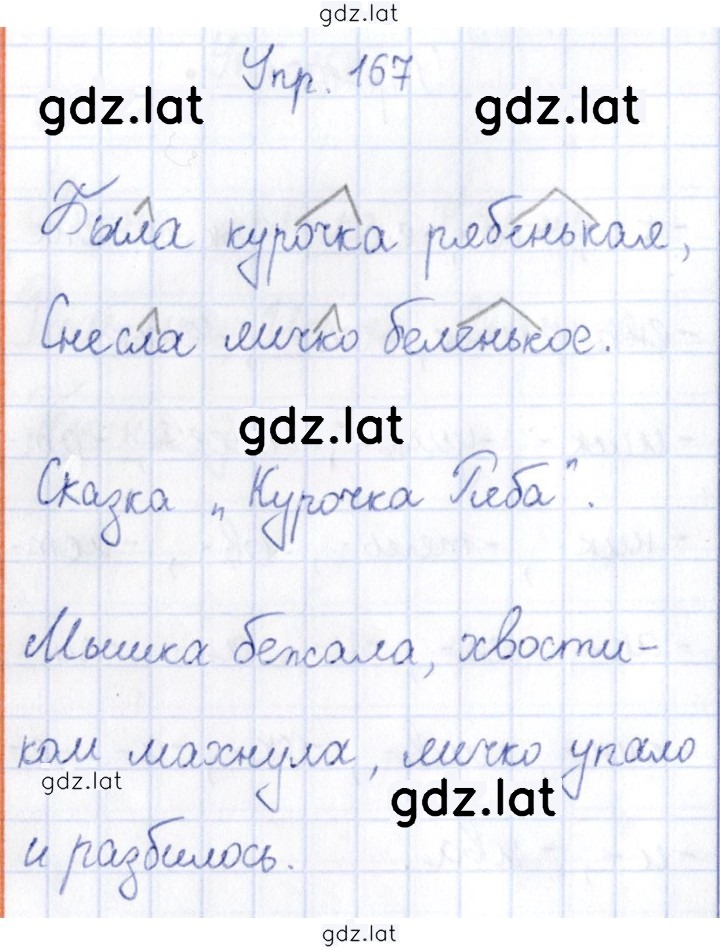 gdz.lat
Упр. 167
gdz.lat gdz.lat
Была курочка рябенькая,
Снесла яичко беленькое.
gdz.lat
Сказка „Курочка Ряба".
Мышка бежала, хвости-
ком махнула, яичко упало
gdz.lat gdz.lat
и разбилось.
gdz.lat